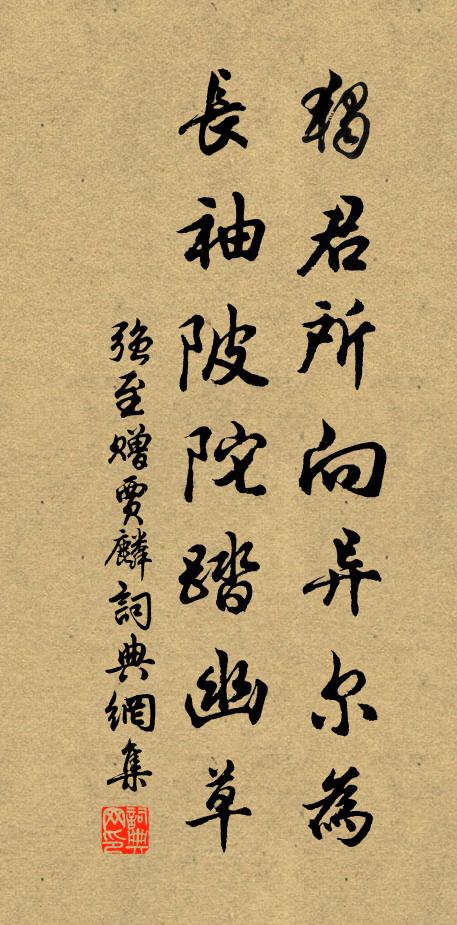 獨君所向异尔為
長袖陂陀踏幽草
强至贈賈麟詞典網集
詞典网印